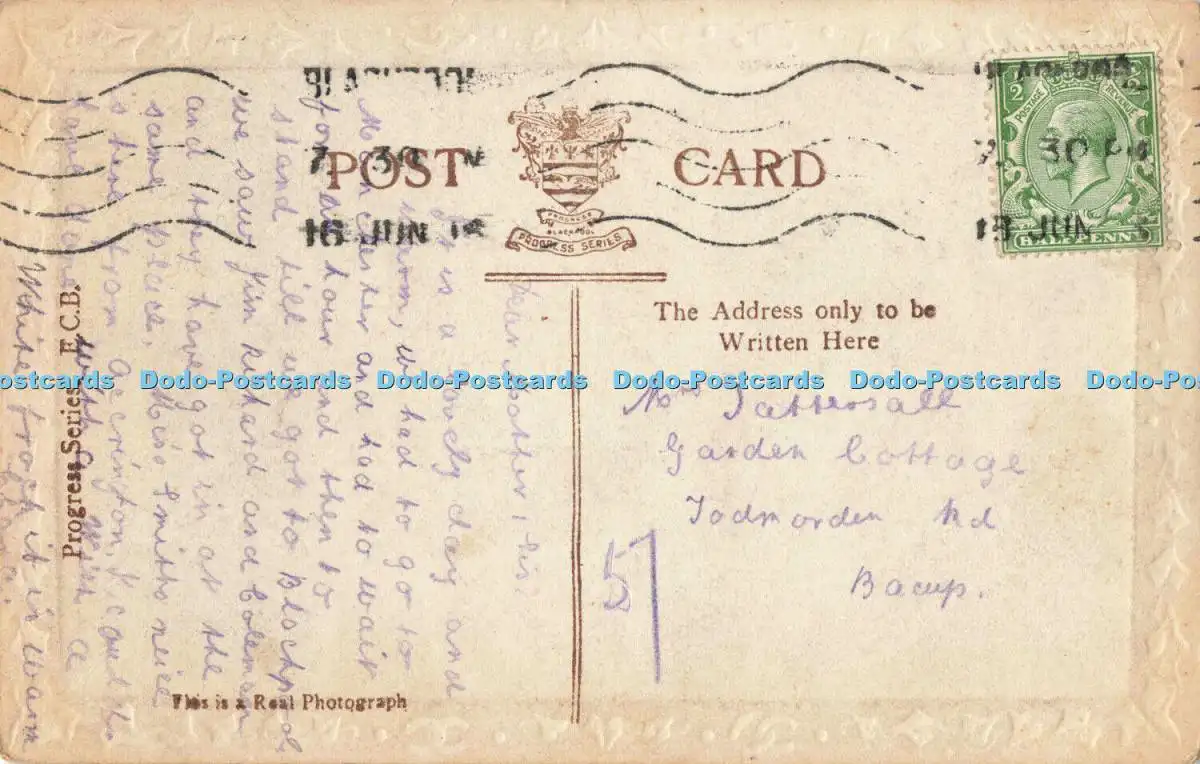 POST CARD
PROGRESS
BLACKPOOL
PROGRESS SERIES
7 30 PM
16 JUN
30 PM
JUN
POSTAGE REVENUE
HALFPENNY
The Address only to be
Written Here
Mrs Tattersall
Garden Cottage
Todmorden Rd
Bacup.
57
Dear Mother, this
is a lovely day and
warm, we had to go to
Manchester and had to wait
for an hour and then to
stand till we got to Blackpool
we saw Jim Richard and Coleman
and they have got in at the
same place. Miss Smiths neice
is here from Accrington, I
with a
White frock it is warm
Progress Series, E.C.B.
This is a Real Photograph
Dodo-Postcards Dodo-Postcards Dodo-Postcards Dodo-Postcards Dodo-Postcards